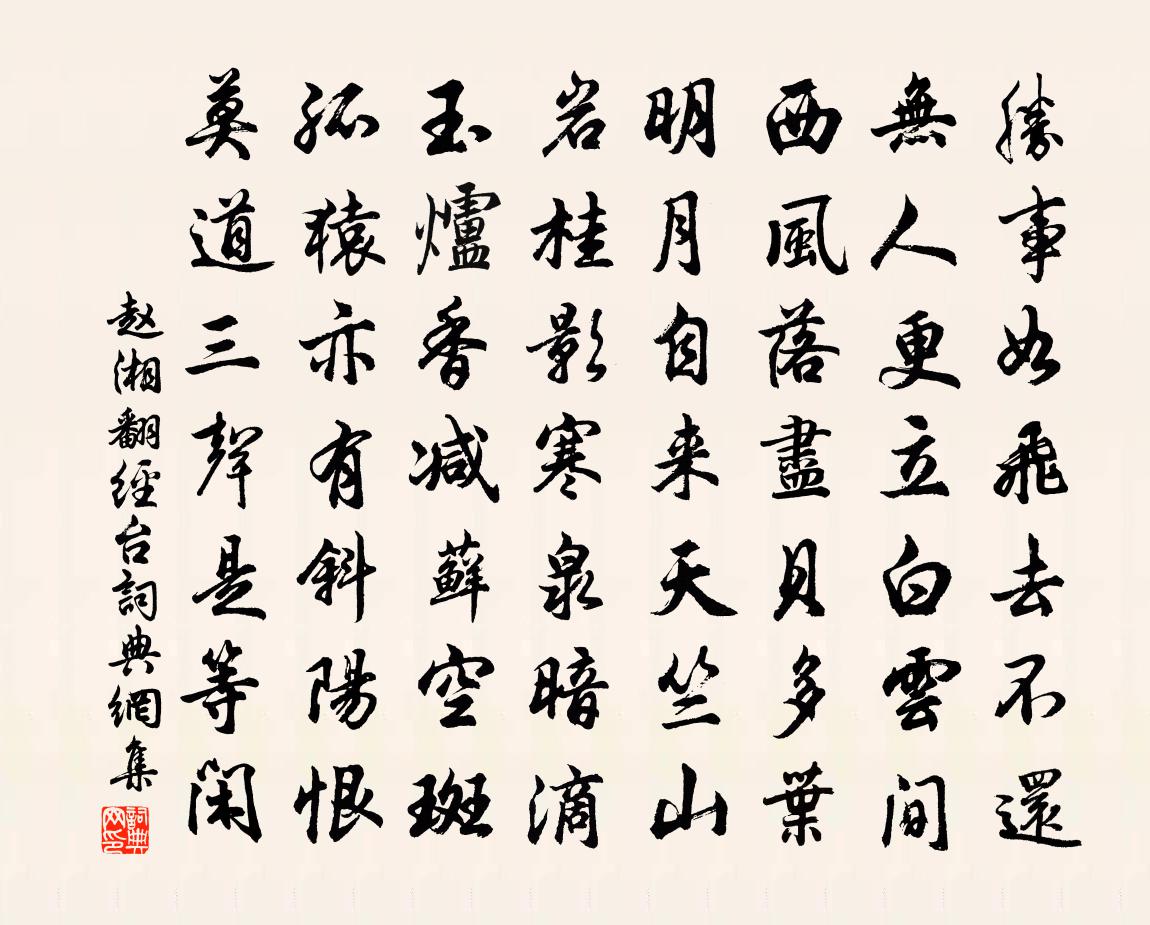 勝事如飛去不還
無人更立白雲間
西風落盡貝多葉
明月自来天竺山
岩桂影寒泉暗滴
玉爐香减蘚空斑
孤猿亦有斜陽恨
莫道三聲是等閑
赵湘翻經台詞典網集
詞典网印